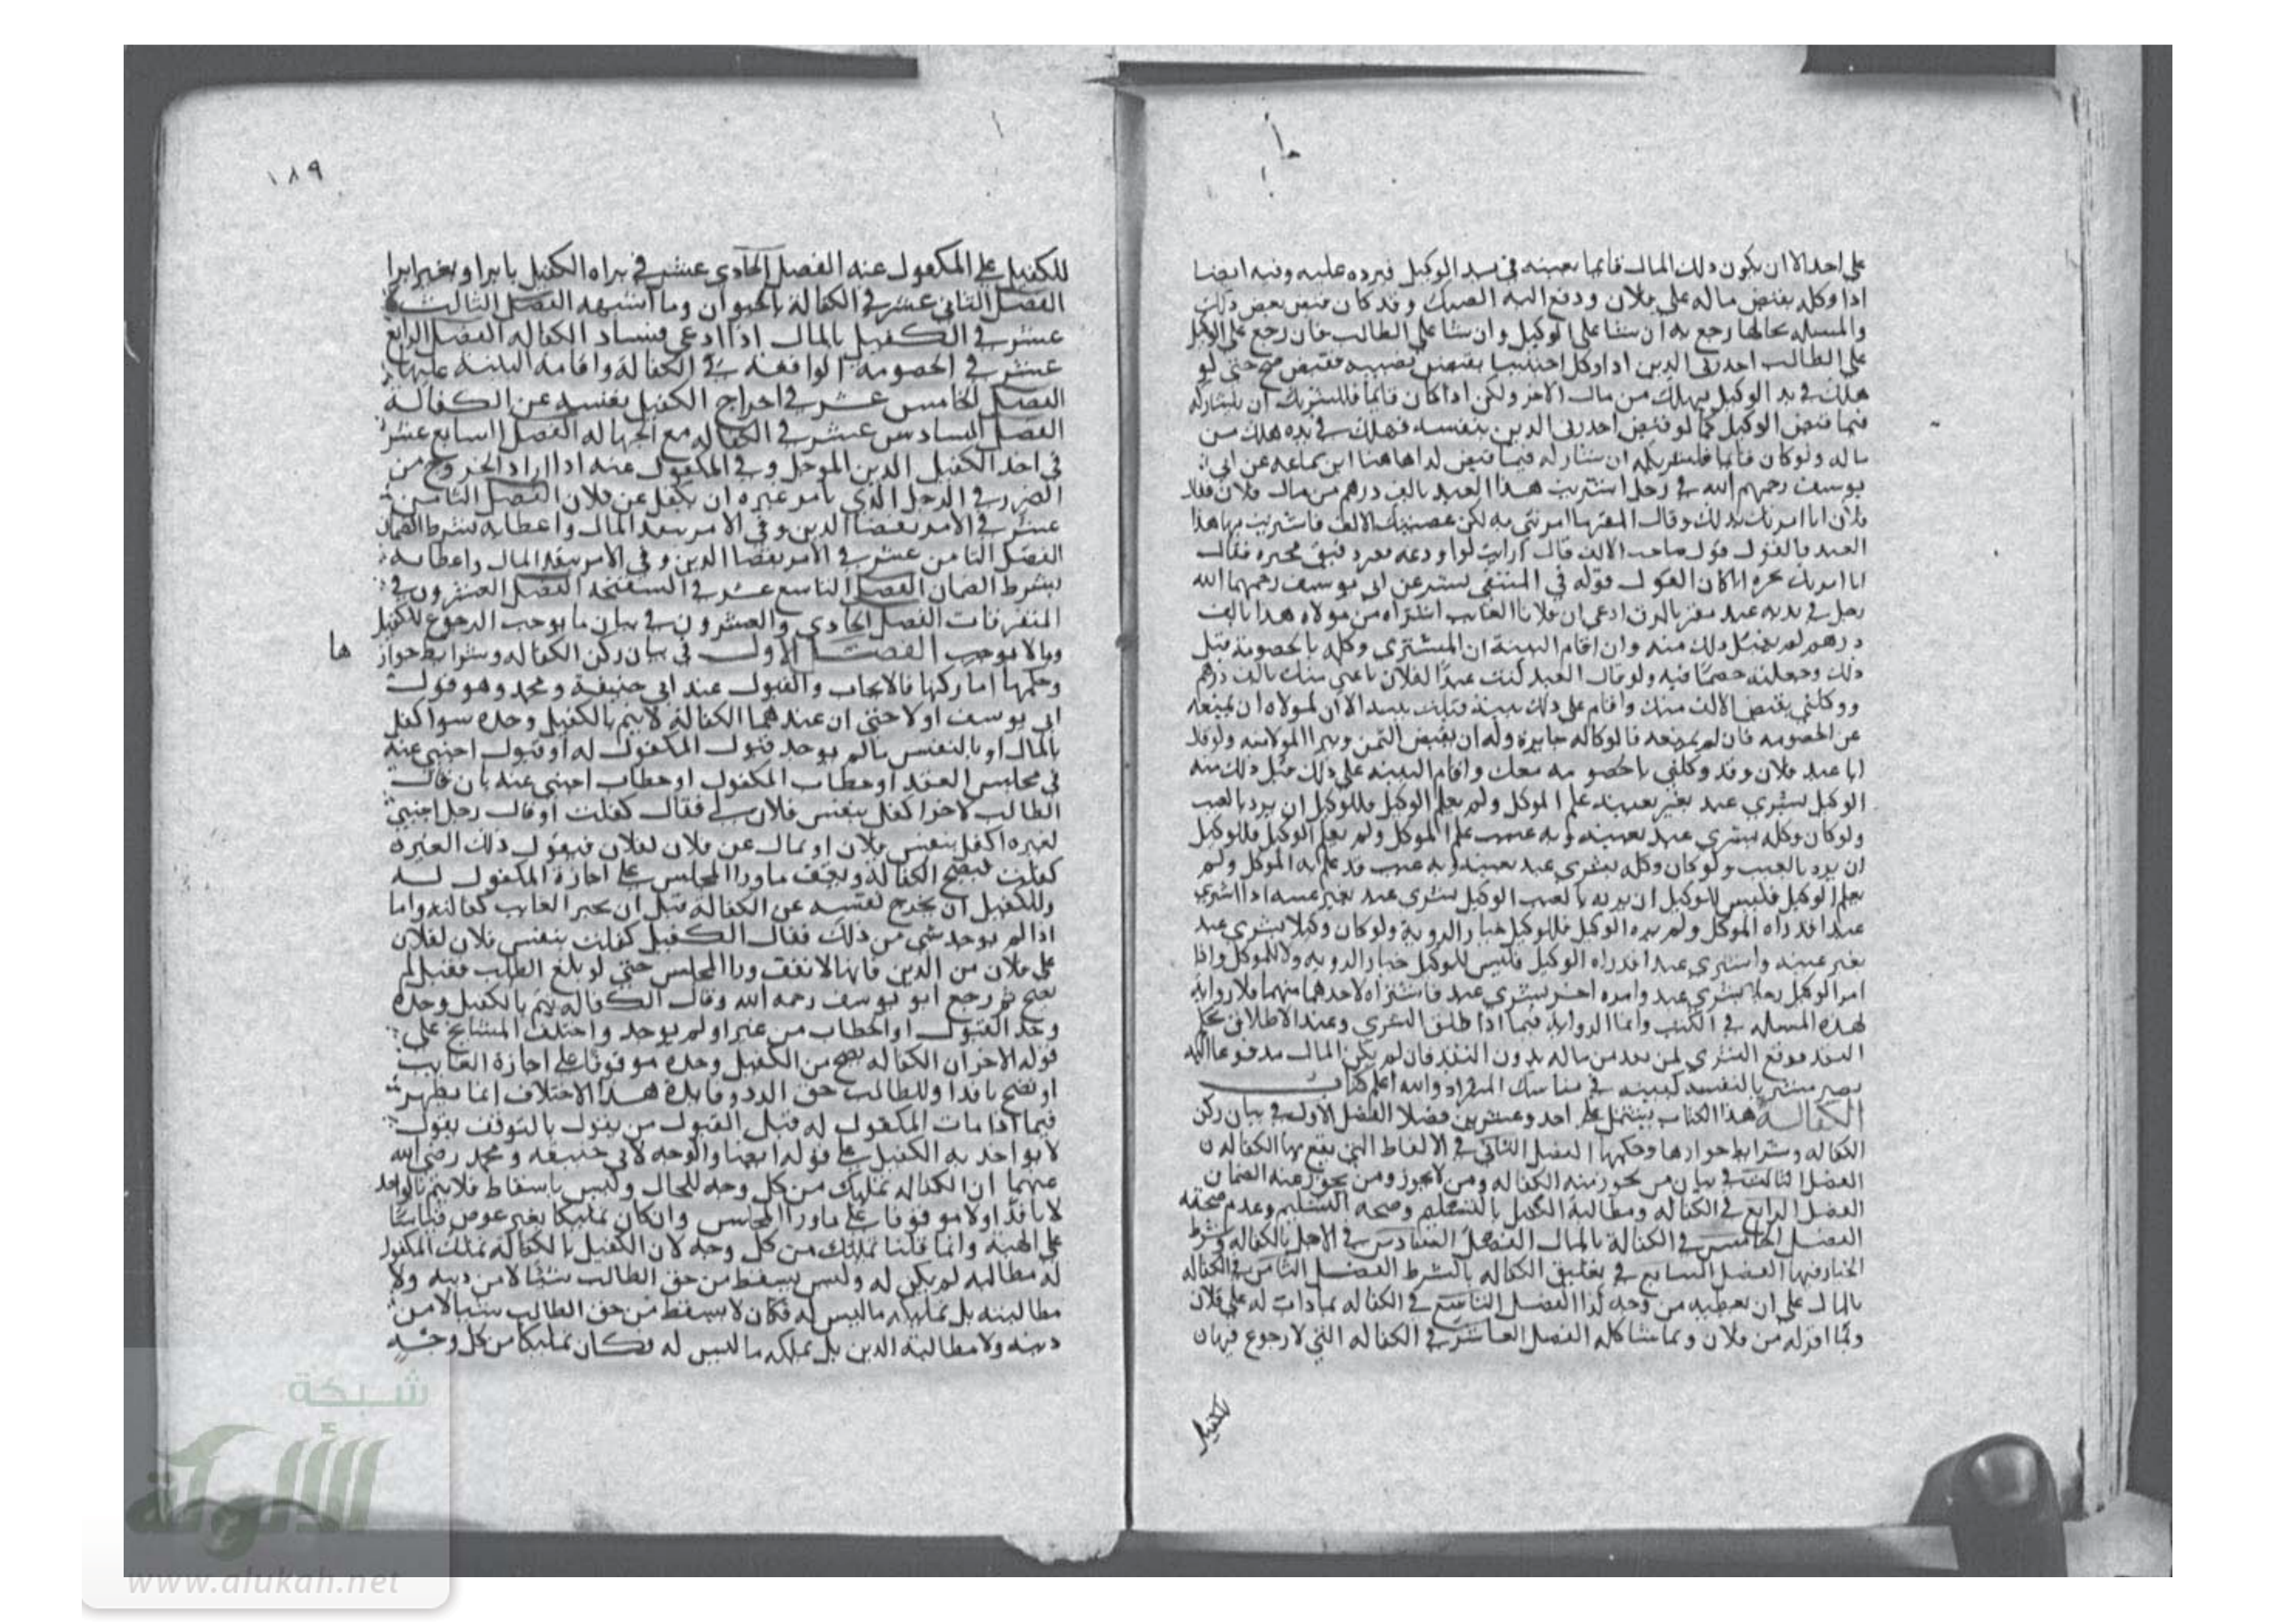 على احد الا ان يكون ذلك المال قائما بعينه في يد الوكيل فيرده عليه وفيه ايضا
اذا وكله بقبض ماله على فلان ودفع اليه الصك وقد كان قبض بعض ذلك
والمسله بحالها رجع به ان شا على الوكيل وان شا على الطالب فان رجع على الوكيل
على الطالب احد ربى الدين اذا وكل اجنبيا بقبض نصيبه فقبض صح حتى لو
هلك في يد الوكيل يهلك من مال الاخر ولكن اذا كان قائما فللشريك ان يشاركه
فيما قبض الوكيل كما لو قبض احد ربى الدين بنفسه فهلك في يده هلك من
ماله ولو كان قائما فلشريكه ان يشاركه فيما قبض ابن سماعه عن ابى
يوسف رحمهم الله في رجل اشتريت هذا العبد بالف درهم من مال فلان فقال
فلان انا امرتك بذلك وقال المقر ما امرتنى به لكن غصبتك الالف فاشتريت بها هذا
العبد فالقول قول صاحب الالف قال ارايت لو اودعه
قوله في المنتقى بشر عن ابى يوسف رحمهما الله
رجل في يديه عبد مقر بالرق ادعى ان فلانا الغايب اشتراه من مولاه هذا بالف
درهم لم يقبل ذلك منه وان اقام البينة ان المشترى وكله بالخصومة قبل
ذلك وجعلته خصما فيه ولو قال العبد كنت عبدا لفلان باعنى منك بالف درهم
ووكلنى بقبض الالف منك واقام على ذلك بينة قبلت بينته الا ان لمولاه ان يمنعه
عن الخصومه فان لم يمنعه فالوكاله جايزة وله ان يقبض الثمن ويبرا المولا منه ولو قال
انا عبد فلان وقد وكلنى بالخصومه معك واقام البينه على ذلك قبل ذلك منه
الوكيل بشري عبد بغير عينه علم الموكل ولم يعلم الوكيل فللوكيل ان يرد بالعيب
ولو كان وكله بشري عبد بعينه وبه عيب علم الموكل ولم يعلم الوكيل فللوكيل
ان يرد بالعيب ولو كان وكله بشري عبد بعينه وبه عيب قد علم به الموكل ولم
يعلم الوكيل فليس للوكيل ان يرده بالعيب الوكيل بشرى عبد بغير عينه اذا اشترى
عبدا قد راه الموكل ولم يره الوكيل فللوكيل خيار الروية ولو كان وكيلا بشري عبد
بغير عينه واشترى عبدا قد راه الوكيل فليس للوكيل خيار الرويه ولا للموكل واذا
امر الوكيل رجلا بشرى عبد وامره اخر بشرى عبد فاشتراه لاحدهما منهما فلا رواية
لهذه المسله في الكتب وانما الرواية فيما اذا اطلق الشرى وعند الاطلاق
النقد فوقع الشري لمن نقد من ماله بدون النقد فان لم يكن المال مدفوعا اليه
يصير مشتريا لنفسه في والله اعلم كتاب
الكفالة هذا الكتاب يشتمل على احد وعشرين فصلا الفصل الاول في بيان ركن
الكفاله وشرايط جوازها وحكمها الفصل الثاني في الالفاظ التي يقع بها الكفاله
الفصل الثالث في بيان من يجوز منه الكفاله ومن لا يجوز ومن يجوز عنه الضمان
الفصل الرابع في الكفاله ومطالبة الكفيل بالتسليم وصحه التسليم وعدم صحته
الفصل الخامس في الكفالة بالمال الفصل السادس في الاجل بالكفاله وشرط
الخيار فيها الفصل السابع في تعليق الكفاله بالشرط الفصل الثامن في الكفالة
بالمال على ان يعطيه من وجه كذا الفصل التاسع في الكفاله بما ذاب له على فلان
وبما اقر له من فلان وبما شاكله الفصل العاشر في الكفاله التي لا رجوع فيها
للكفيل
١٨٩
للكفيل على المكفول عنه الفصل الحادى عشر في براه الكفيل بابرا وبغير ابرا
الفصل الثانى عشر في الكفالة بالحيوان وما اشبهه الفصل الثالث
عشر في الكفيل بالمال اذا ادعى فساد الكفاله الفصل الرابع
عشر في الخصومة الواقعة في الكفالة واقامة البينة عليها
الفصل الخامس عشر في اخراج الكفيل بنفسه عن الكفالة
الفصل السادس عشر في الكفاله مع الجهاله الفصل السابع عشر
في اخذ الكفيل الدين الموجل وفي المكفول عنه اذا اراد الخروج من
الضرر في الرجل الذي يامر غيره ان يكفل عن فلان الفصل الثامن
عشر في الامر بقضا الدين وفي الامر بنقد المال واعطايه بشرط الضمان
الفصل الثامن عشر في الامر بقضا الدين وفي الامر بنقد المال واعطايه
بشرط الضمان الفصل التاسع عشر في السفتجه الفصل العشرون في
المتفرقات الفصل الحادي والعشرون في بيان ما يوجب الرجوع للكفيل
وما لا يوجب الفصل الاول في بيان ركن الكفاله وشرايط جواز ها
وحكمها اما ركنها فالايجاب والقبول عند ابى حنيفة ومحمد وهو قول
ابى يوسف اولا حتى ان عندهما الكفالة لا يتم بالكفيل وحده سوا كفل
بالمال او بالنفس ما لم يوجد قبول المكفول له او قبول اجنبي عنه
في مجلس العقد او خطاب المكفول او خطاب اجنبى عنه بان قال
الطالب لاخر اكفل بنفس فلان لي فقال كفلت او قال رجل اجنبي
لغيره اكفل بنفس فلان او بمال عن فلان لفلان فيقول ذلك الغيره
كفلت فيصح الكفالة ويقف ما ورا المجلس على اجازة المكفول له
وللكفيل ان يخرج نفسه عن الكفالة قبل ان يجيز الغايب كفالته واما
اذا لم يوجد شي من ذلك فقال الكفيل كفلت بنفس فلان لفلان
على فلان من الدين فانها لا تقف ورا المجلس حتى لو بلغ الطلب فقبل لم
تصح ثم رجع ابو يوسف رحمه الله وقال الكفاله يتم بالكفيل وحده
وجد القبول او الخطاب من غير او لم يوجد واختلف المشايخ على
قوله الاخر ان الكفاله يصح من الكفيل وحده موقوفا على اجازة الغايب
او تصح نافذا وللطالب حق الرد وفايدة هذا الاختلاف انما يظهر
فيما اذا مات المكفول له قبل القبول من يقول بالتوقف يقول
لا يواخذ به الكفيل على قوله ايضا والوجه لابى حنيفه ومحمد رضى الله
عنهما ان الكفاله تمليك من كل وجه للحال وليس باسقاط فلا يتم بالواحد
لا نافذا ولا موقوفا على ما ورا المجلس وان كان تمليكا بغير عوض قياسا
على الهبة وانما قلنا تمليك من كل وجه لان الكفيل بالكفالة تملك المكفول
له مطالبه لم يكن له وليس يسقط من حق الطالب شيئا لا من دينه ولا
مطالبته بل تمليكه ما ليس له فكان لا يسقط من حق الطالب شيا لا من
دينه ولا مطالبة الدين بل تمليكه ما ليس له فكان تمليكا من كل وجه
شبكة
الألوكة
www.alukah.net